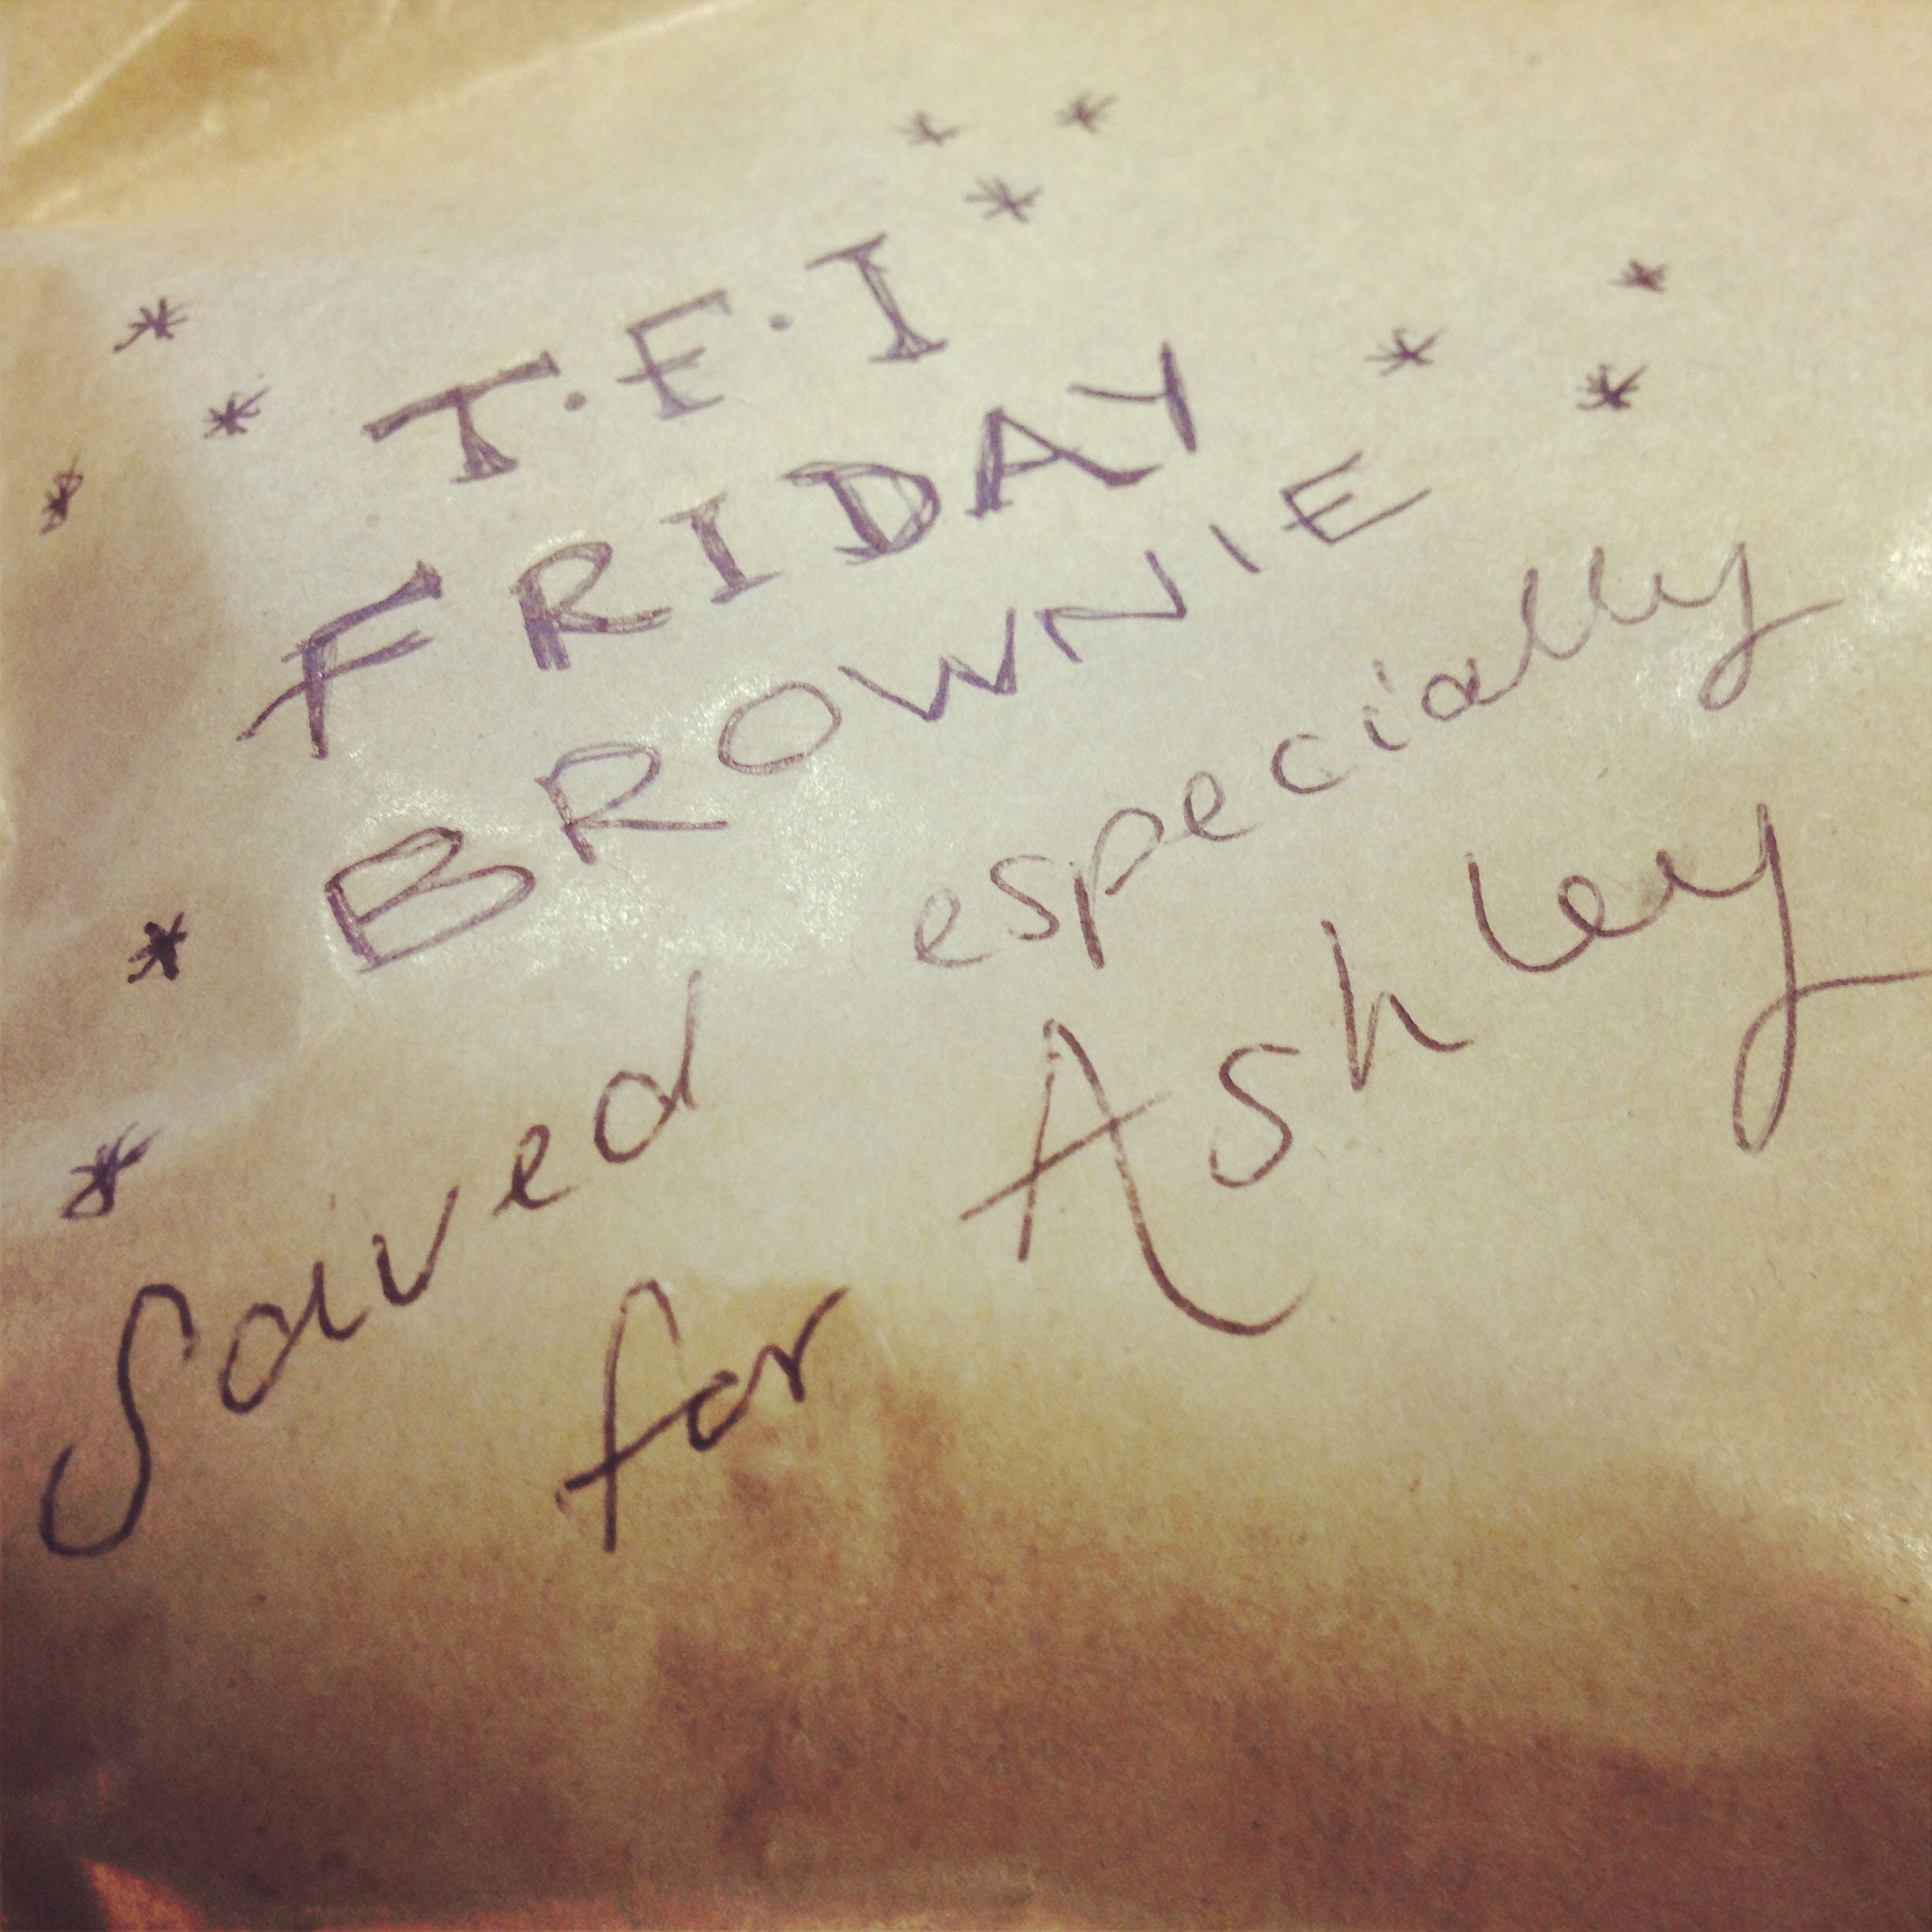 T.F.I
FRIDAY
BROWNIE
Saved especially
for Ashley